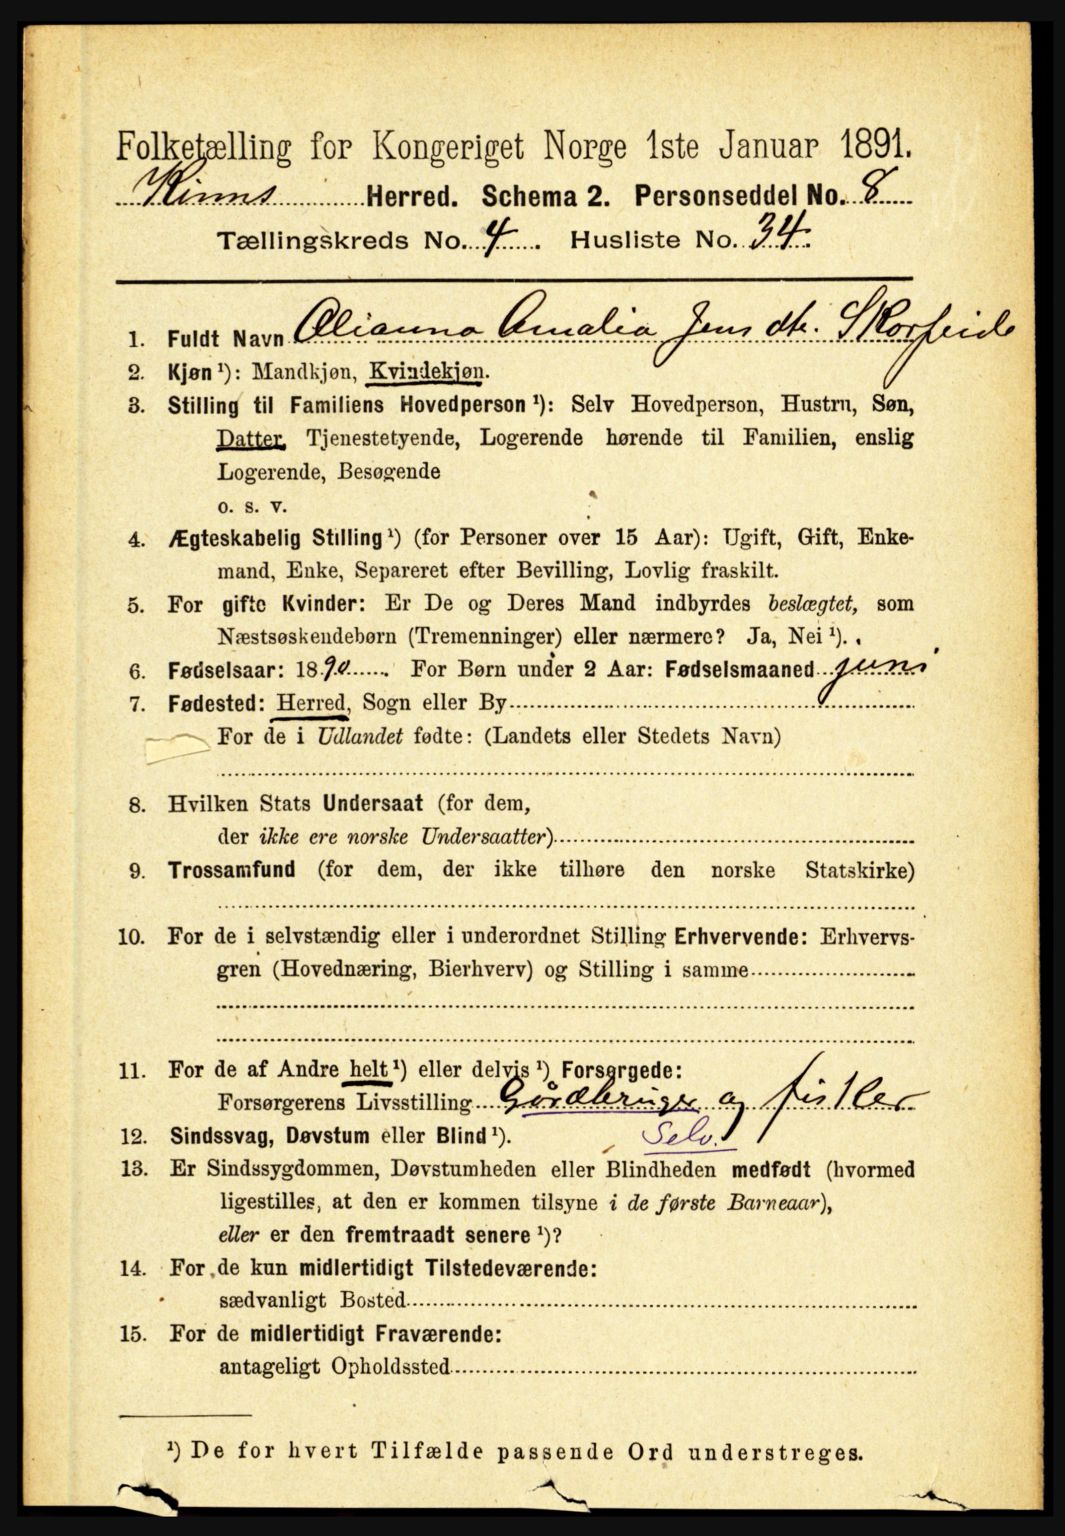 Folketælling for Kongeriget Norge 1ste Januar 1891.
Kinns Herred. Schema 2. Personseddel No. 8
Tællingskreds No. 4. Husliste No. 34.
1. Fuldt Navn Olianna Amalia Jensdtr. Skorpeide
2. Kjøn ¹): Mandkjøn, Kvindekjøn.
3. Stilling til Familiens Hovedperson ¹): Selv Hovedperson, Hustru, Søn,
Datter, Tjenestetyende, Logerende hørende til Familien, enslig
Logerende, Besøgende
o. s. v.
4. Ægteskabelig Stilling ¹) (for Personer over 15 Aar): Ugift, Gift, Enke-
mand, Enke, Separeret efter Bevilling, Lovlig fraskilt.
5. For gifte Kvinder: Er De og Deres Mand indbyrdes beslægtet, som
Næstsøskendebørn (Tremenninger) eller nærmere? Ja, Nei ¹).
6. Fødselsaar: 1890. For Børn under 2 Aar: Fødselsmaaned juni
7. Fødested: Herred, Sogn eller By
For de i Udlandet fødte: (Landets eller Stedets Navn)
8. Hvilken Stats Undersaat (for dem,
der ikke ere norske Undersaatter)
9. Trossamfund (for dem, der ikke tilhøre den norske Statskirke)
10. For de i selvstændig eller i underordnet Stilling Erhvervende: Erhvervs-
gren (Hovednæring, Bierhverv) og Stilling i samme
11. For de af Andre helt ¹) eller delvis ¹) Forsørgede:
Forsørgerens Livsstilling Gårdbruger og fisker
12. Sindssvag, Døvstum eller Blind ¹). Selv.
13. Er Sindssygdommen, Døvstumheden eller Blindheden medfødt (hvormed
ligestilles, at den er kommen tilsyne i de første Barneaar),
eller er den fremtraadt senere ¹)?
14. For de kun midlertidigt Tilstedeværende:
sædvanligt Bosted
15. For de midlertidigt Fraværende:
antageligt Opholdssted
¹) De for hvert Tilfælde passende Ord understreges.